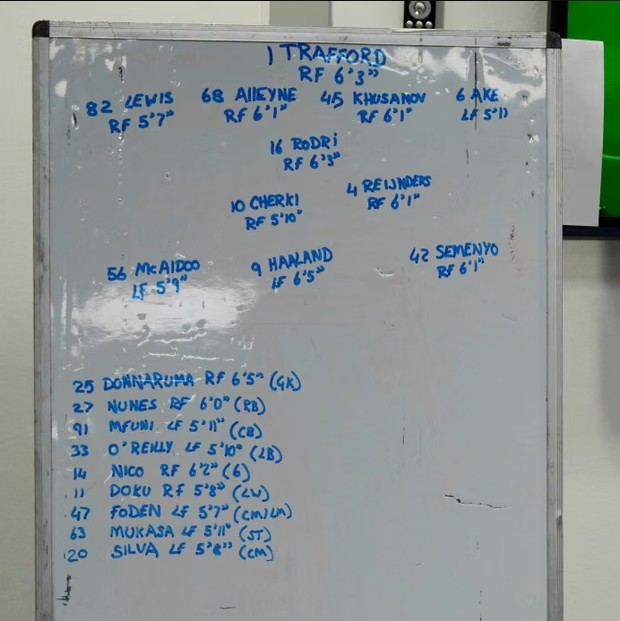 1 TRAFFORD
RF 6'3"
82 LEWIS
RF 5'7"
68 AllEYNE
RF 6'1"
45 KHUSANOV
RF 6'1"
6 AKE
LF 5'11
16 RODRi
RF 6'3"
10 CHERKI
RF 5'10"
4 REIJNDERS
RF 6'1"
56 McAIDOO
LF 5'9"
9 HAALAND
LF 6'5"
42 SEMENYO
RF 6'1"
25 DONNARUMA RF 6'5" (GK)
27 NUNES RF 6'0" (RB)
91 MFUNI LF 5'11" (CB)
33 O'REILLY LF 5'10" (LB)
14 NICO RF 6'2" (6)
11 DOKU RF 5'8" (LW)
47 FODEN LF 5'7" (CM/LM)
63 MUKASA LF 5'11" (ST)
20 SILVA LF 5'8" (CM)